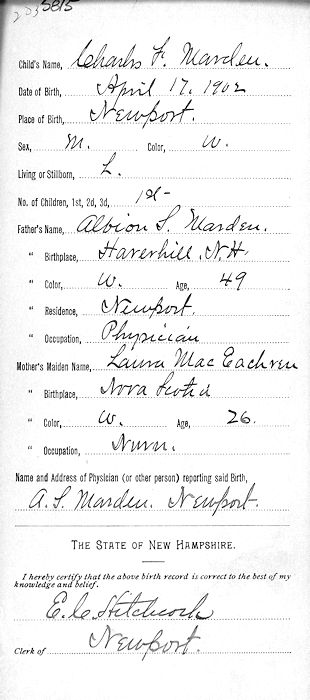 Child's Name, Charles F. Marden.
Date of Birth, April 17. 1902
Place of Birth, Newport.
Sex, M. Color, W.
Living or Stillborn, L.
No. of Children, 1st, 2d, 3d, 1st
Father's Name, Albion S. Marden.
" Birthplace, Haverhill, N.H.
" Color, W. Age, 49
" Residence, Newport.
" Occupation, Physician
Mother's Maiden Name, Laura Mac Eachren
" Birthplace, Nova Scotia
" Color, W. Age, 26.
" Occupation, Nurse.
Name and Address of Physician (or other person) reporting said Birth,
A. S. Marden. Newport.
THE STATE OF NEW HAMPSHIRE.
I hereby certify that the above birth record is correct to the best of my
knowledge and belief.
E. C. Hitchcock
Clerk of Newport.